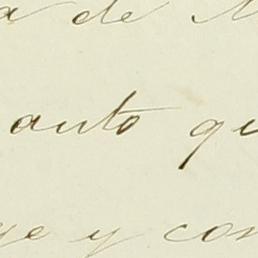 a de
anto qu
ye y con